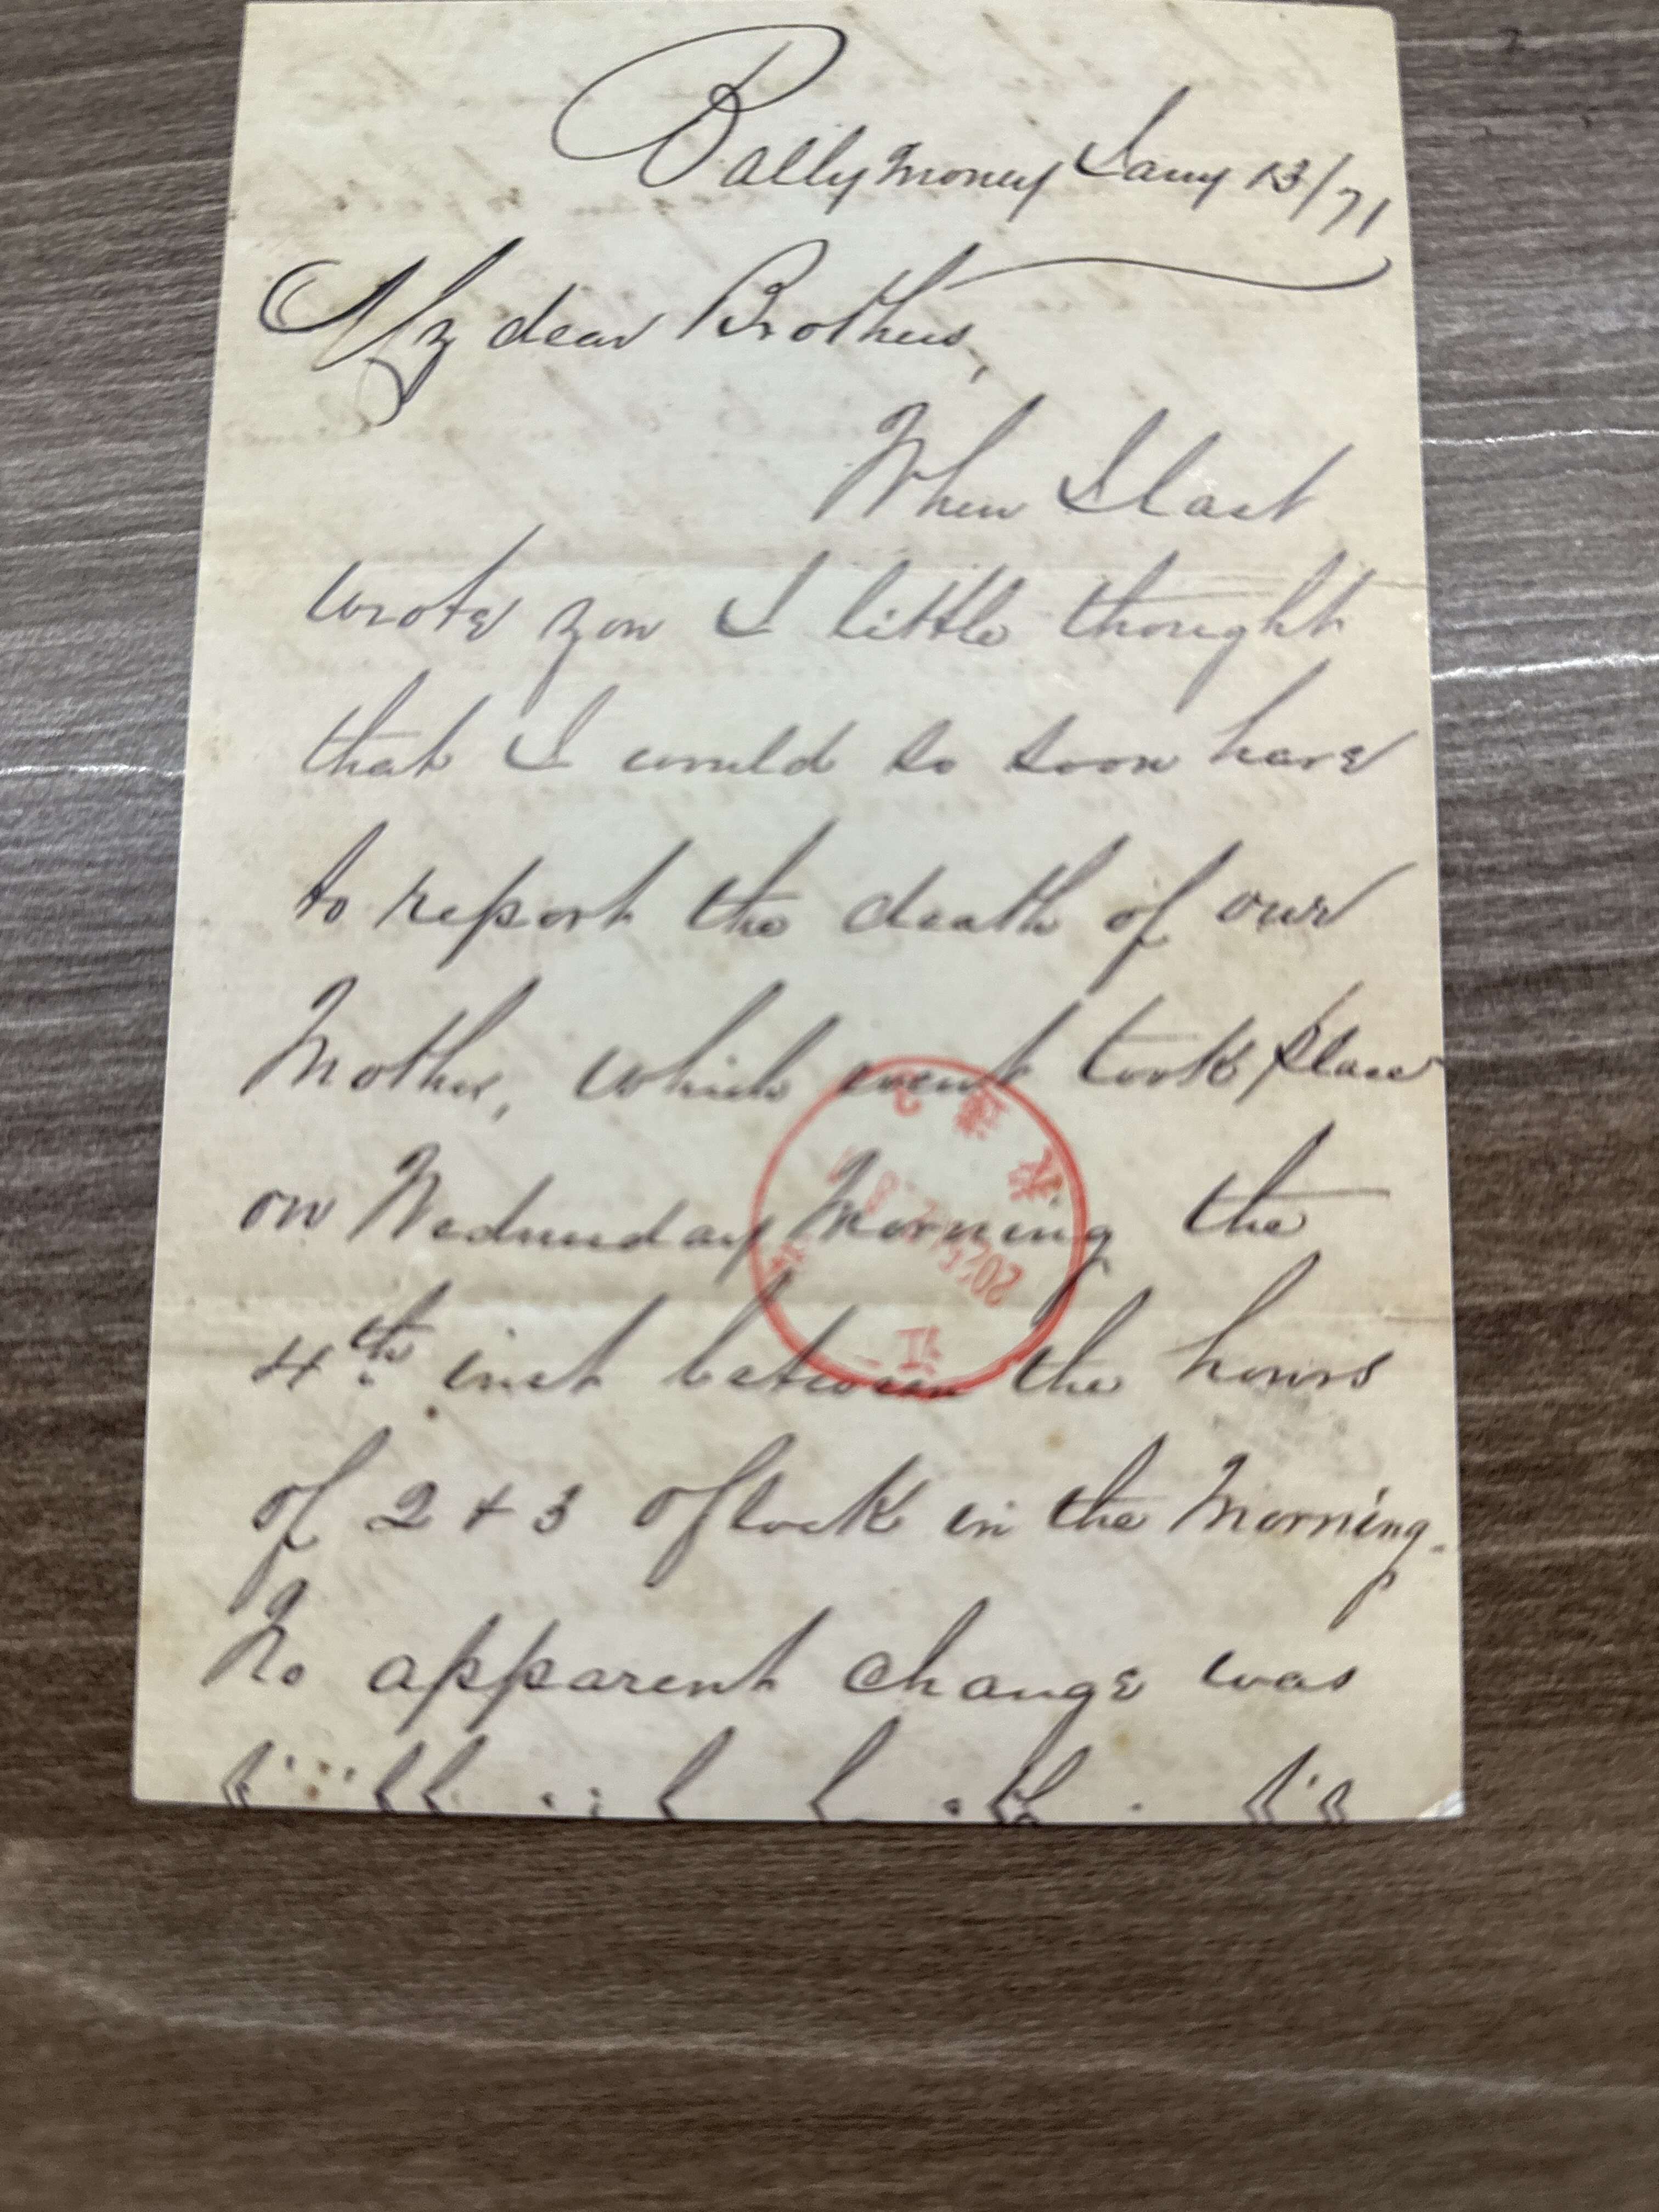 Ballymoney Jany 13/71
My dear Brothers,
When I last
wrote you I little thought
that I would so soon have
to report the death of our
Mother, which event took place
on Wednesday Morning the
4th inst between the hours
of 2 + 3 oflock in the Morning.
No apparent change was
江